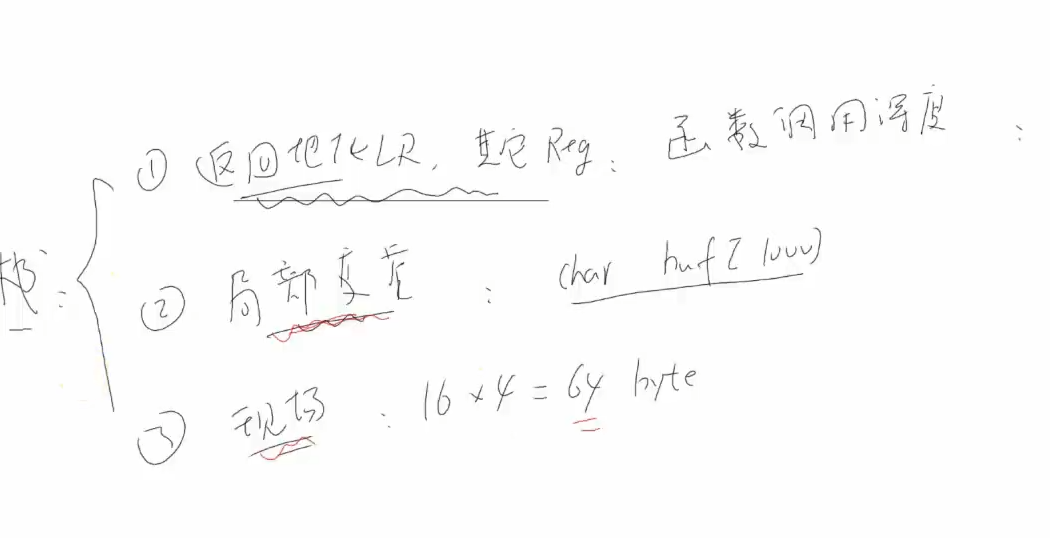 ① 返回地址LR, 其它Reg: 函数调用深度 :
栈:
② 局部变量 : char buf[1000]
③ 现场 : 16×4=64 byte